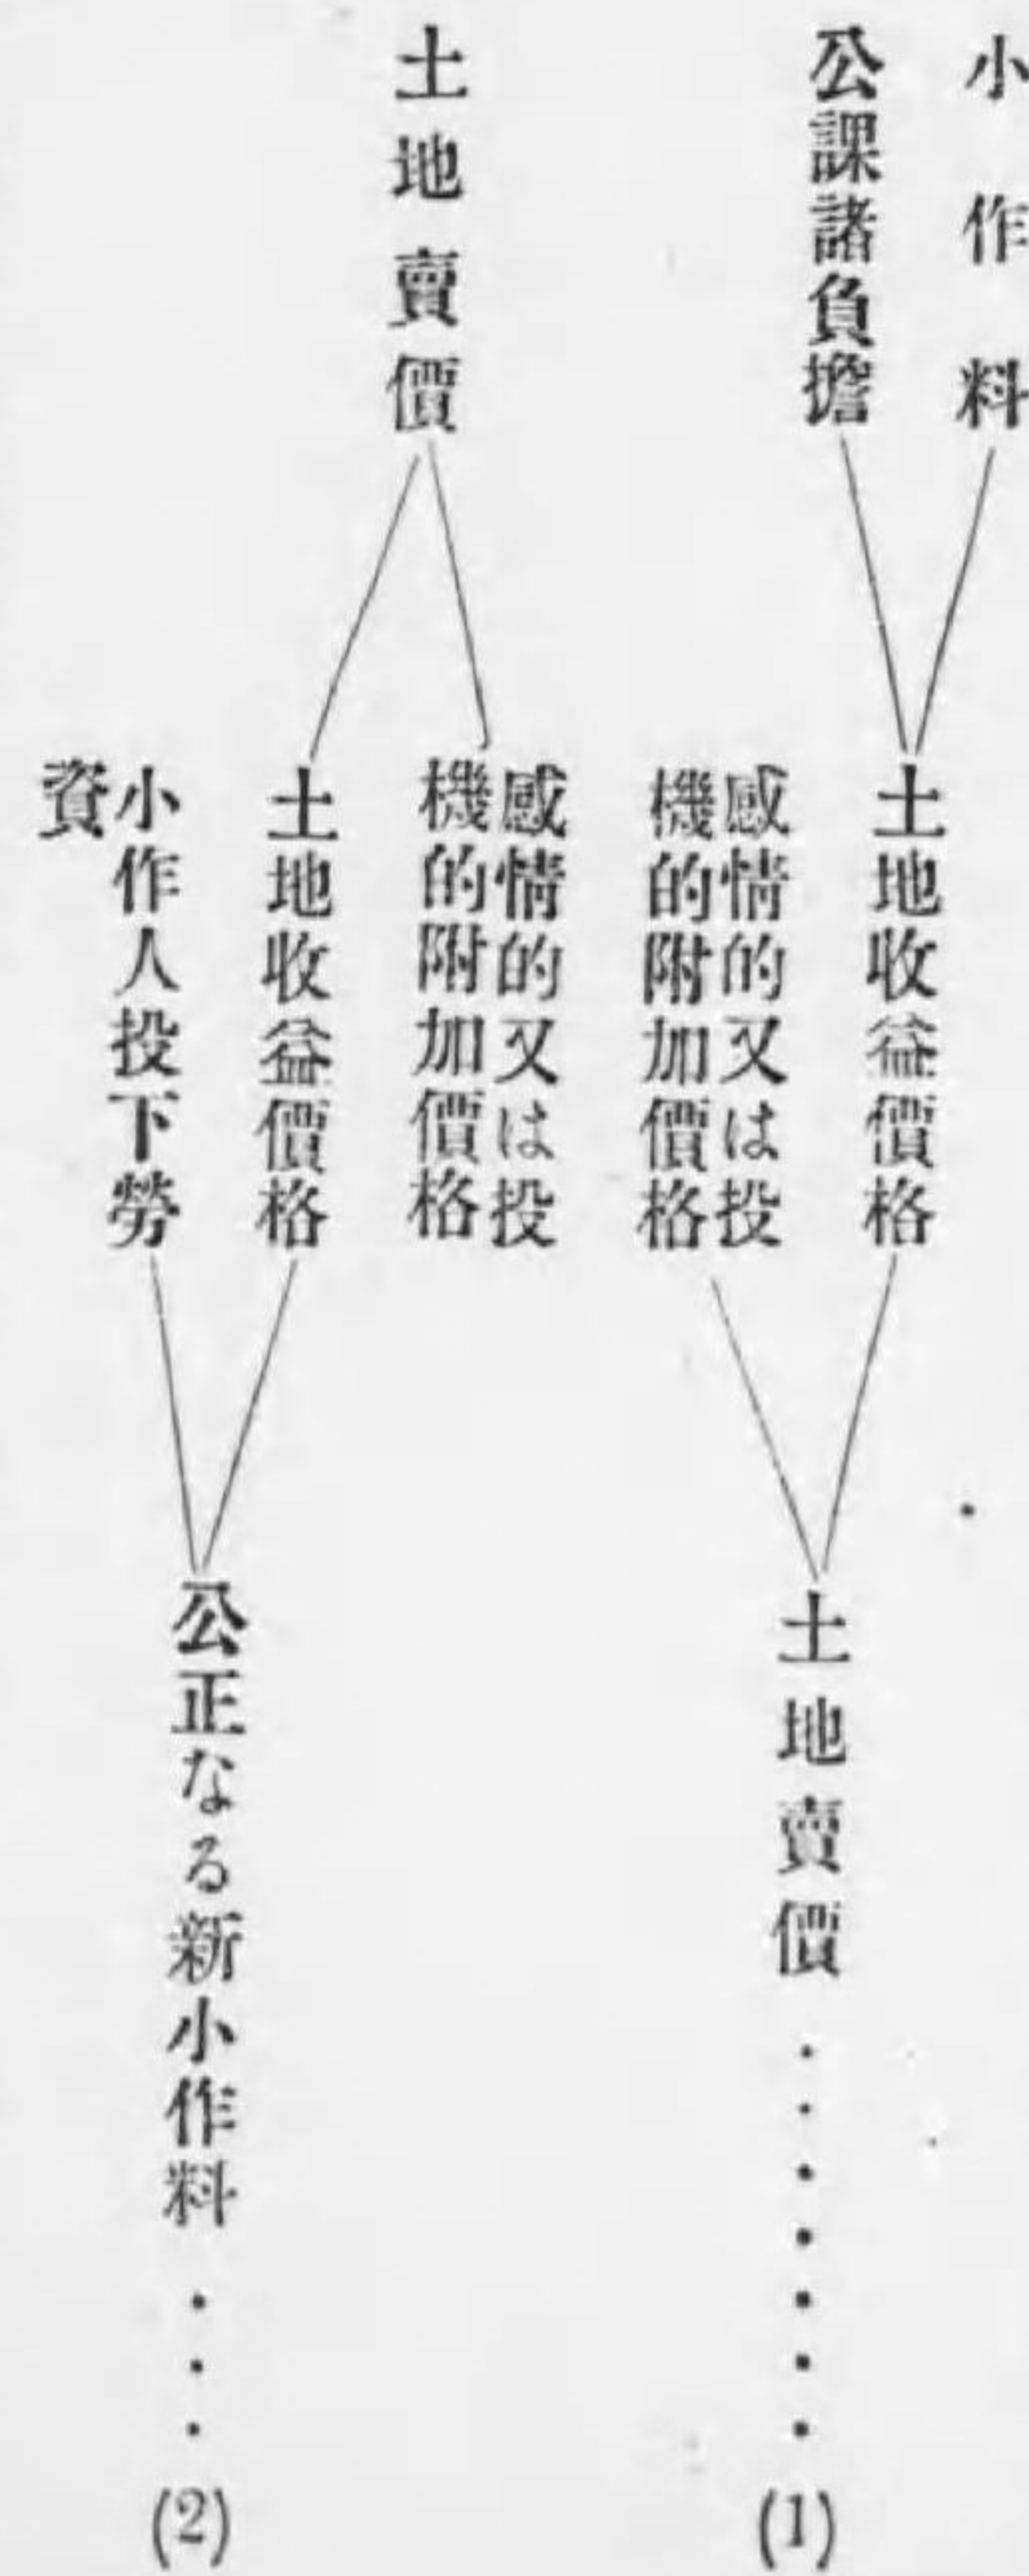 小作料
公課諸負擔
土地收益價格
感情的又は投
機的附加價格
土地賣價・・・・・・・(1)
土地賣價
感情的又は投
機的附加價格
土地收益價格
小作人投下勞
資
公正なる新小作料・・・(2)